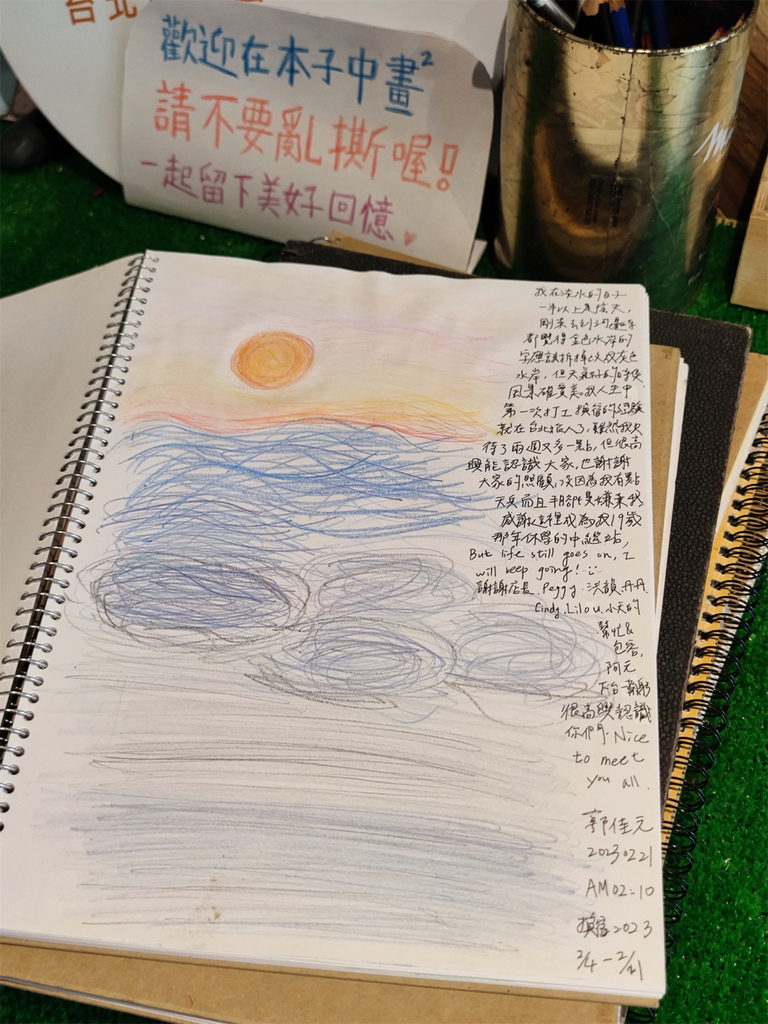 台北
歡迎在本子中畫²
請不要亂撕喔!
一起留下美好回憶♥
我在淡水的日子
一半以上是陰天,
剛來去到河邊時
都覺得金色水岸的
字應該拆掉改成灰色
水岸,但天氣好的時候
風景確實美。我人生中
第一次打工換宿的經驗
就在台北在人了,雖然我只
待了兩週又多一點,但很高
興能認識大家,也謝謝
大家的照顧,次因為我有點
天兵而且手腳
感謝這裡成為我19歲
那年休學的中繼站,
But life still goes on, I
will keep going! :)
謝謝店長、Peggy、洪韻、丹丹、
Cindy、Lilou、小天的
幫忙&
包容,
阿元
下台鞠躬
很高興認識
你們、Nice
to meet
you all.
郭佳元
20230221
AM02:10
換宿2023
2/4-2/21